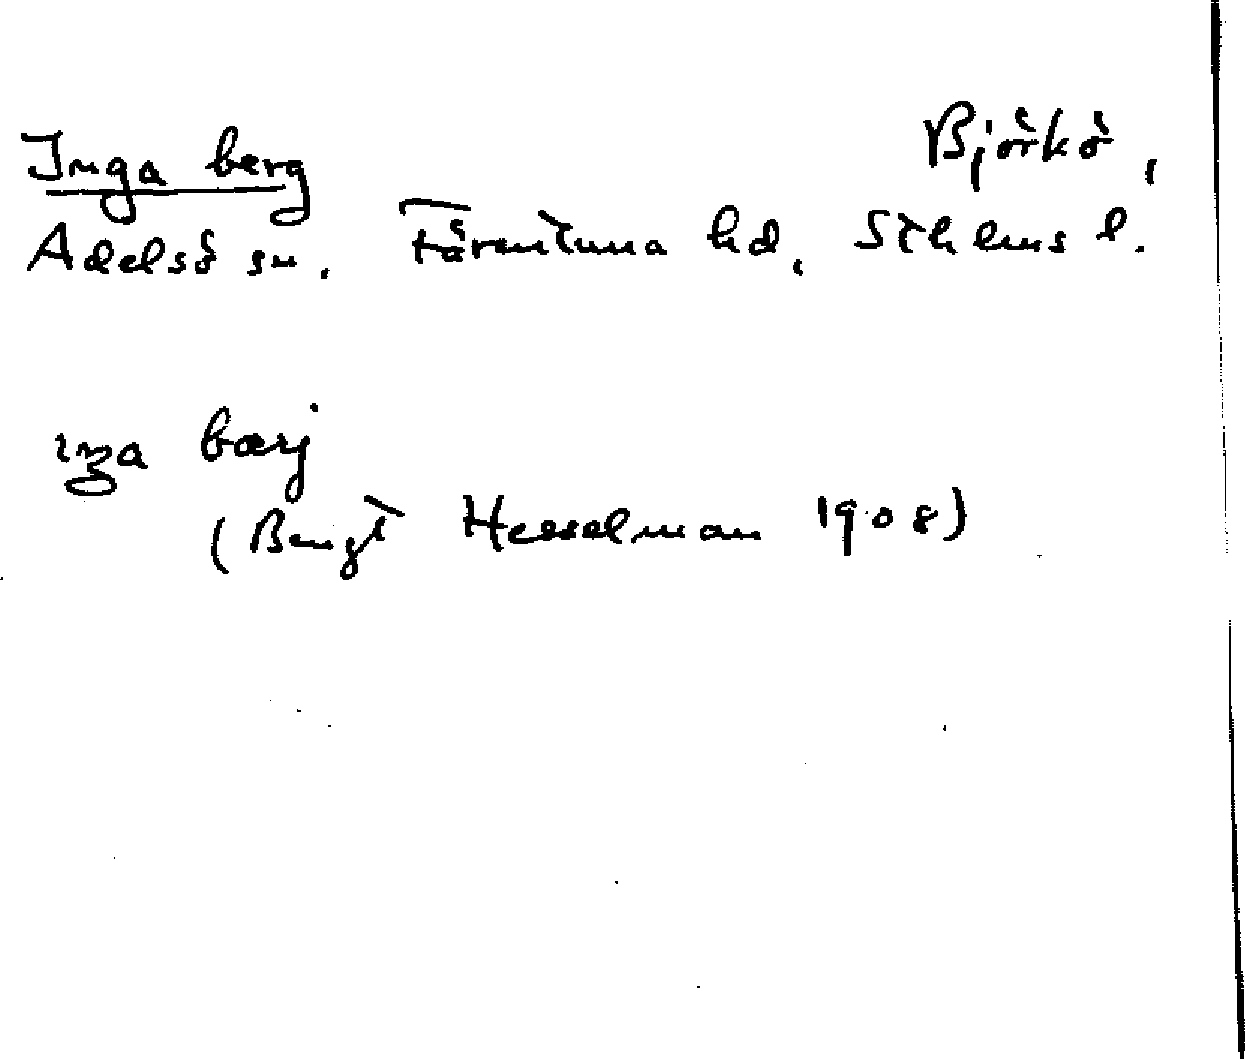 Inga berg
Björkö,
Adelsö sn. Färentuna hd, Sthlms l.
ıŋa bærj
(Bengt Hesselman 1908)